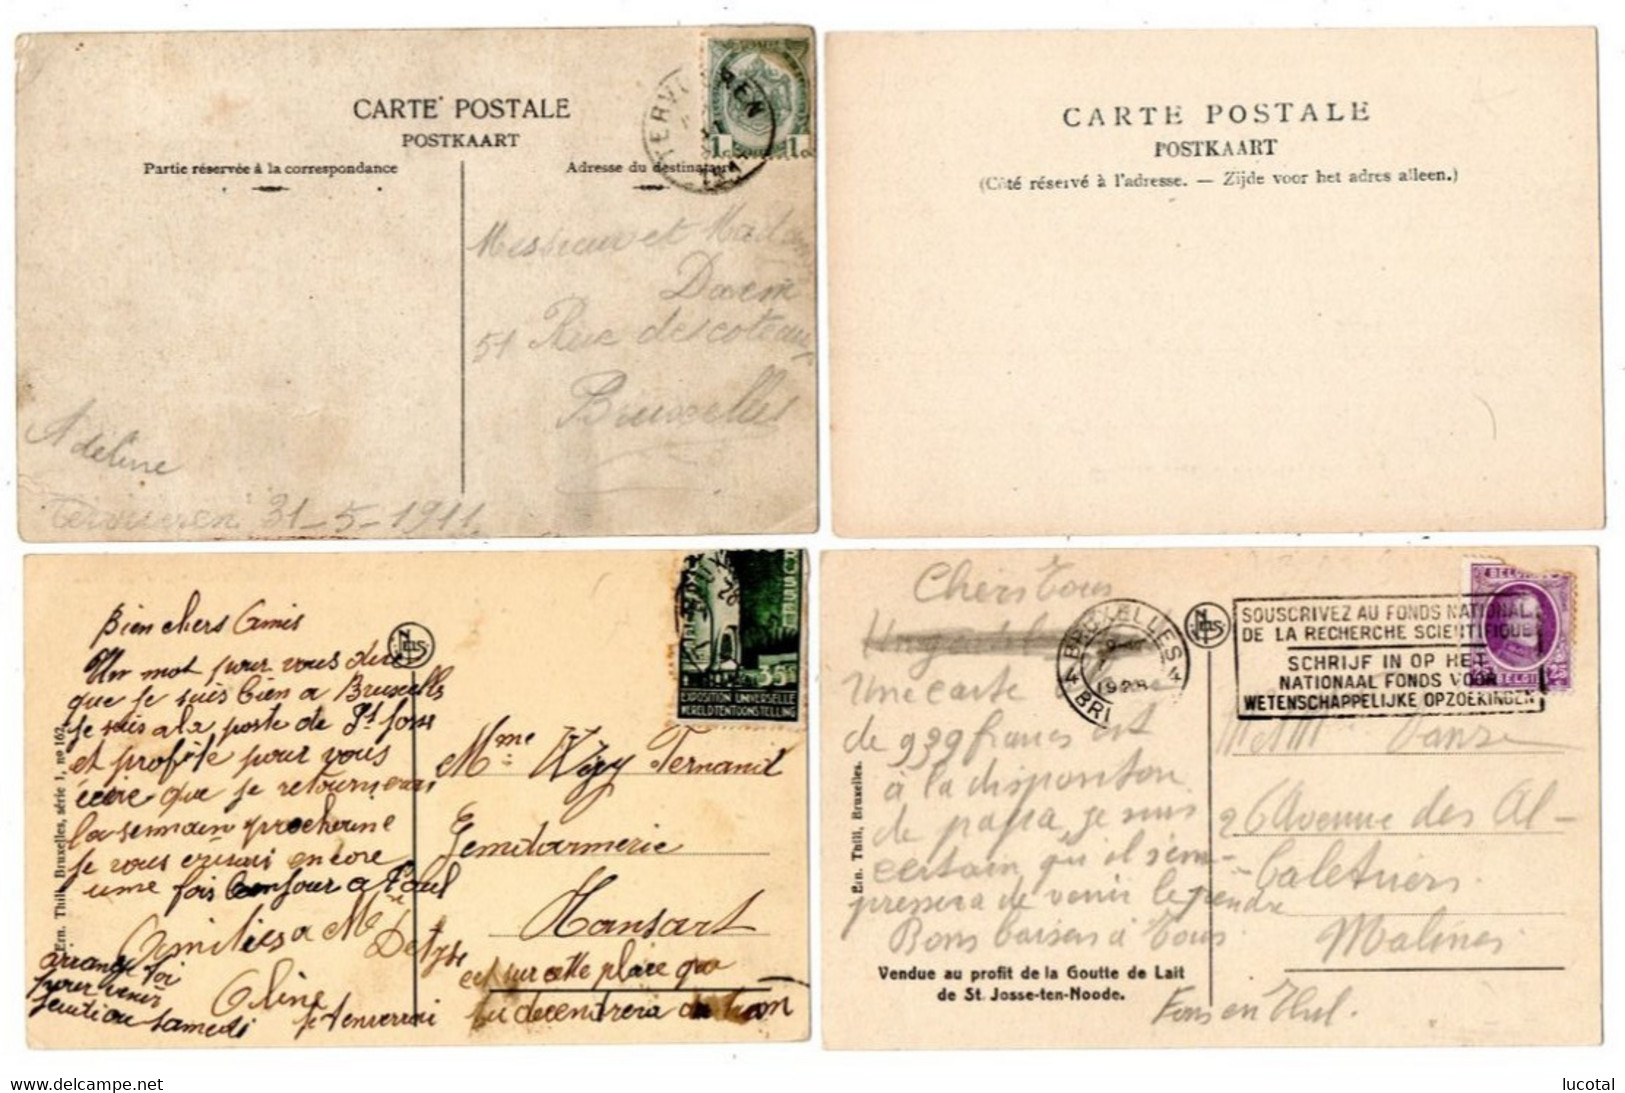 CARTE POSTALE
POSTKAART
Partie réservée à la correspondance
Adresse du destinataire
TERVUEREN
1c. 1c.
Messieur et Madam
Darem
51 Rue des coteau
Bruxelles
Adeline
Tervueren 31-5-1911
CARTE POSTALE
POSTKAART
(Côté réservé à l'adresse. — Zijde voor het adres alleen.)
Bien chers Amis
Un mot pour vous dire
que je suis bien a Bruxelles
je suis a la poste de St. Joss
et profite pour vous
écrire que je retournerai
la semain prochaine
je vous écrirai encore
une fois bonjour a Paul
Amities a Me
Aline
arrange toi
pour venir
samedi
je t'enverrai
NELS
Ern. Thill, Bruxelles, série 1, no 162.
35
EXPOSITION UNIVERSELLE
WERELDTENTOONSTELLING
Mme Wéry Fernand
Gendarmerie
Hansart
est sur cette place que
tu decendrera du tram
Chers Tous
Une carte
de 939 francs est
à la disposition
de papa, je suis
certain qu'il s'em-
pressera de venir le prendre
Bons baisers à Tous
Vendue au profit de la Goutte de Lait
de St. Josse-ten-Noode.
Ern. Thill, Bruxelles.
NELS
BRUXELLES 4
1928
4 BRU
SOUSCRIVEZ AU FONDS NATIONAL
DE LA RECHERCHE SCIENTIFIQUE
SCHRIJF IN OP HET
NATIONAAL FONDS VOOR
WETENSCHAPPELIJKE OPZOEKINGEN
26 Avenue des Al-
Malines
lucotal